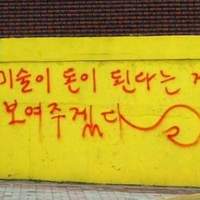 미술이 돈이 된다는 거
보여주겠다